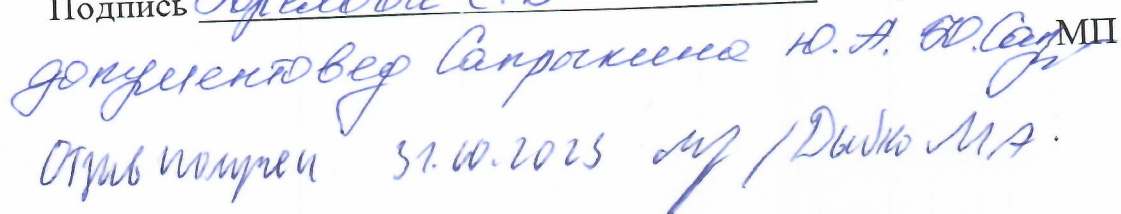 Подпись
документовед Сапрыкина Ю.А. МП
Отзыв получен 31.10.2023 / Дыбко М А.